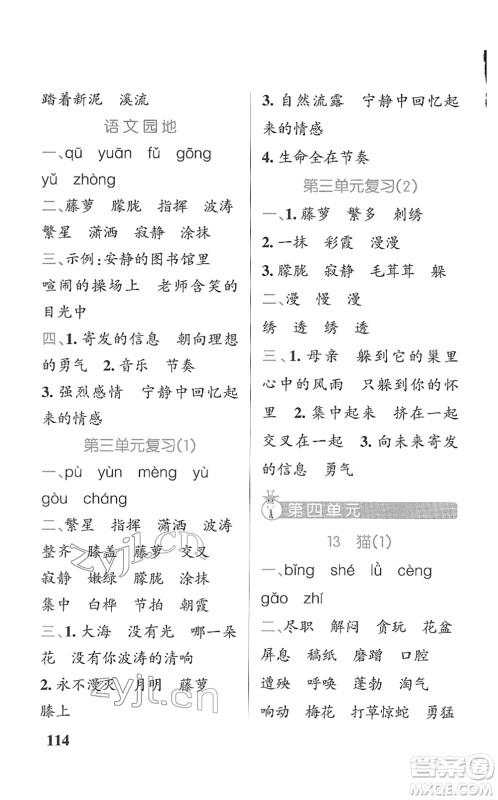 踏着新泥 溪流
语文园地
一、qū yuān fǔ gōng
yǔ zhòng
二、藤萝 朦胧 指挥 波涛
繁星 潇洒 寂静 涂抹
三、示例：安静的图书馆里
喧闹的操场上 老师含笑的
目光中
四、1. 寄发的信息 朝向理想
的勇气 2. 音乐 节奏
3. 强烈感情 宁静中回忆起
来的情感
第三单元复习(1)
一、pù yùn mèng yù
gòu cháng
二、繁星 指挥 潇洒 波涛
整齐 膝盖 萝卜 交叉
寂静 嫩绿 朦胧 涂抹
集中 白桦 节拍 朝霞
三、1. 大海 没有光 哪一朵
花 没有你波涛的清响
2. 永不漫灭 月明 藤萝
膝上
114
3. 自然流露 宁静中回忆起
来的情感
4. 生命全在节奏
第三单元复习(2)
一、1. 藤萝 繁多 刺绣
2. 一抹 彩霞 漫漫
3. 朦胧 寂静 毛茸茸 躲
二、漫 慢 慢
绣 透 透 绣
三、1. 母亲 躲到它的巢里
心中的风雨 只躲到你的怀
里 2. 集中起来 挤在一起
交叉在一起 3. 向未来寄发
的信息 勇气
第四单元
13 猫(1)
一、bǐng shé lǜ cèng
gǎo zhí
二、尽职 解闷 贪玩 花盆
屏息 稿纸 磨蹭 口腔
遭殃 呼唤 蓬勃 淘气
响动 梅花 打草惊蛇 勇猛
zyjl.cn
zyjl.cn
答案圈
MXQE.COM